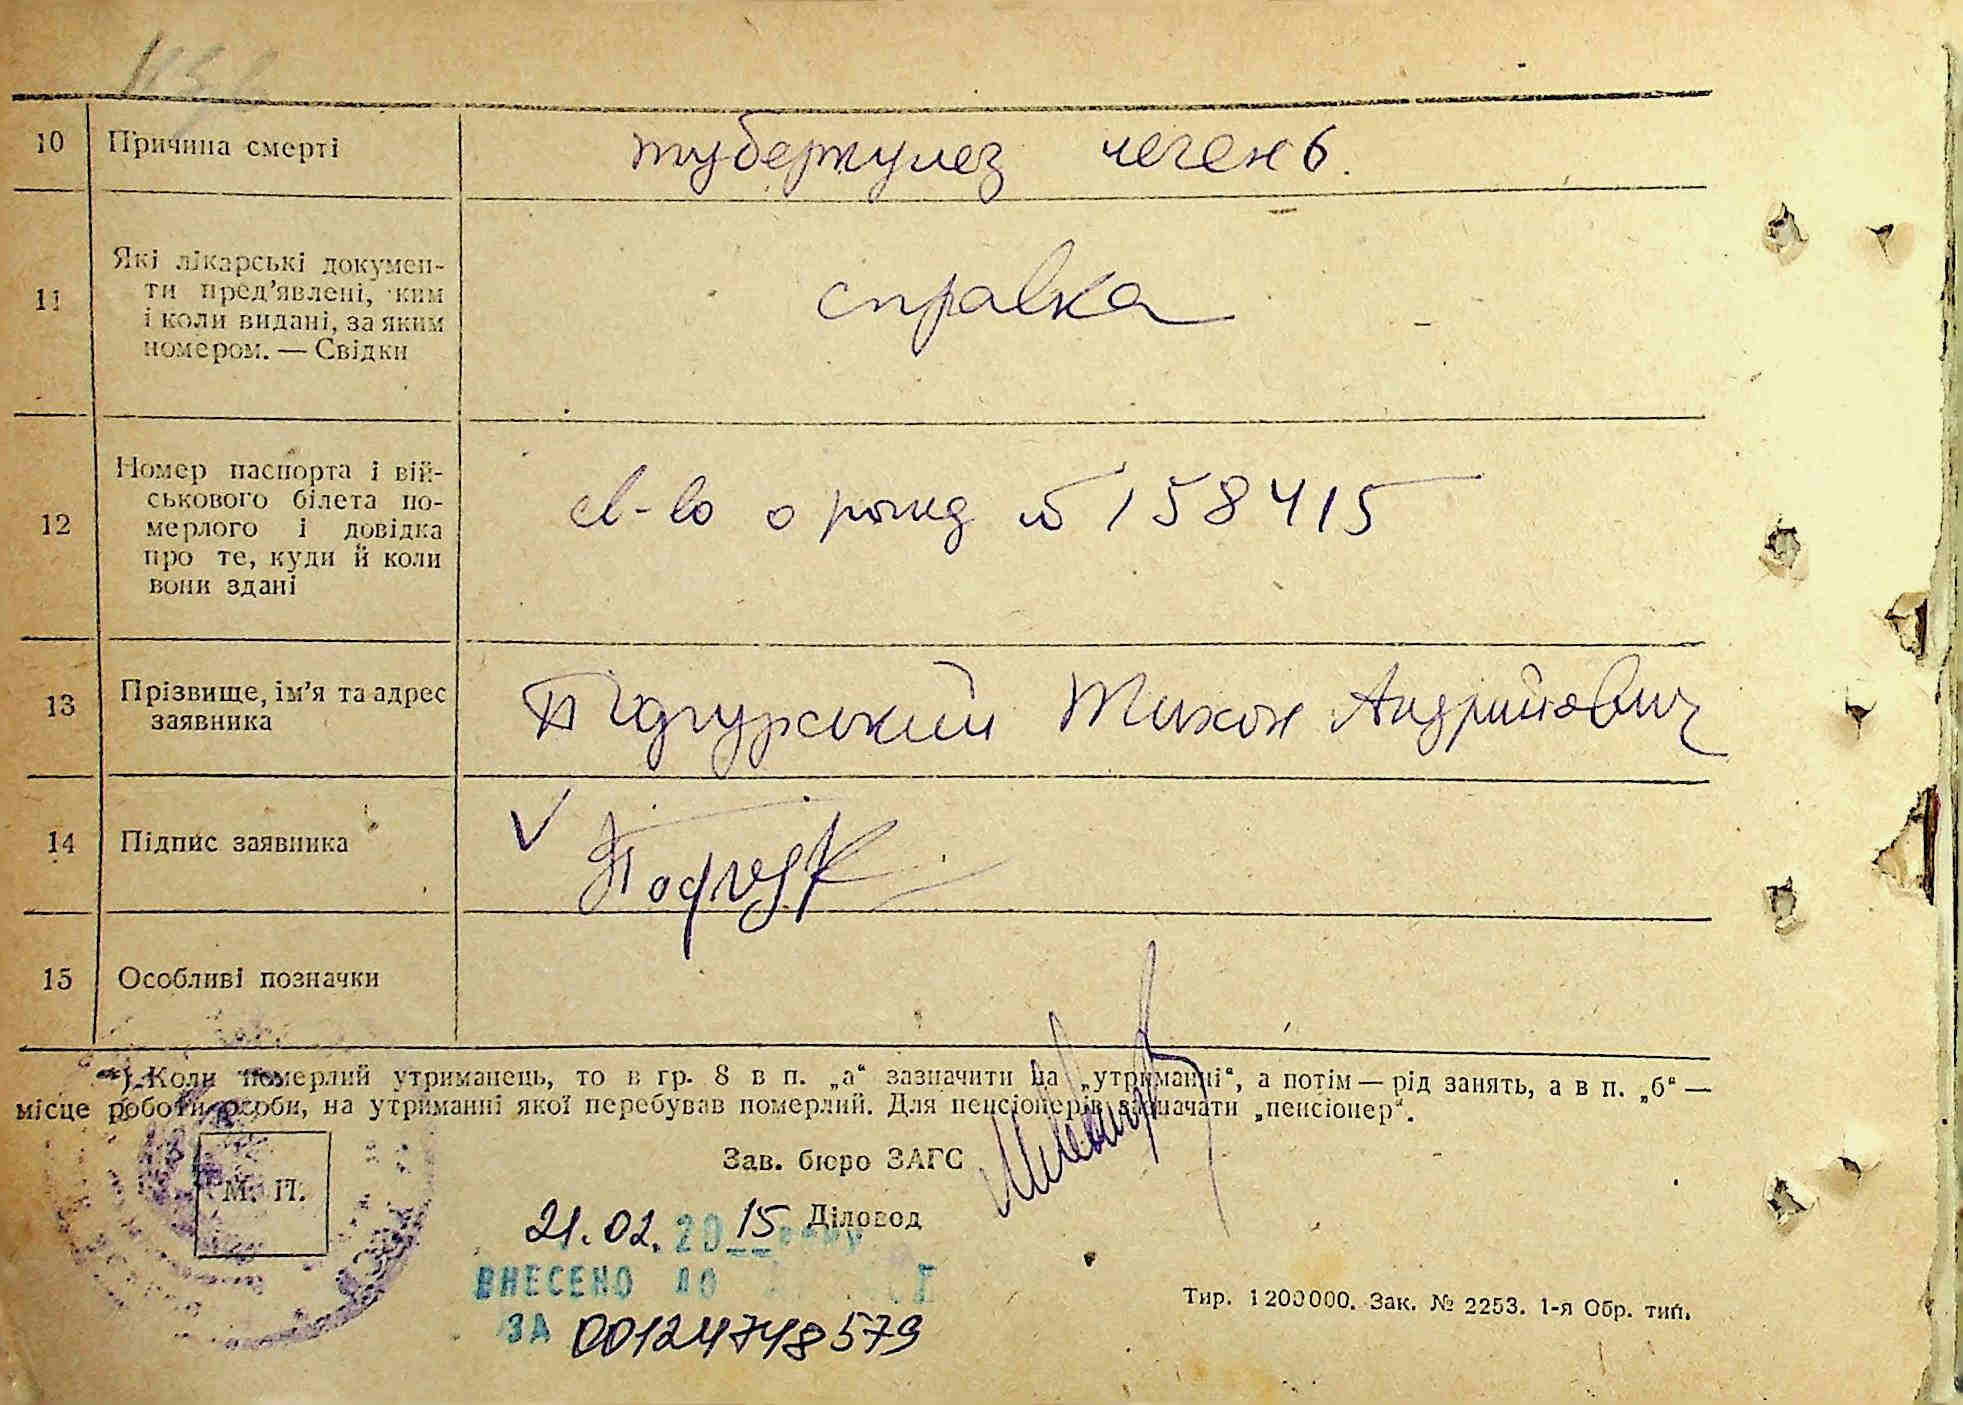 10 Причина смерті туберкулез легень.
11 Які лікарські докумен-
ти пред'явлені, ким
і коли видані, за яким
номером. — Свідки
справка
12 Номер паспорта і вій-
ськового білета по-
мерлого і довідка
про те, куди й коли
вони здані
св-во о рожд № 158415
13 Прізвище, ім'я та адрес
заявника
Підгурський Тихон Андрийович
14 Підпис заявника
15 Особливі позначки
*) Коли померлий утриманець, то в гр. 8 в п. „а“ зазначити на „утриманні“, а потім — рід занять, а в п. „б“ —
місце роботи особи, на утриманні якої перебував померлий. Для пенсіонерів зазначати „пенсіонер“.
М. П.
Зав. бюро ЗАГС
Діловод
21.02. 2015 року
ВНЕСЕНО ДО
ЗА 00124748579
Тир. 1200000. Зак. № 2253. 1-я Обр. тип.